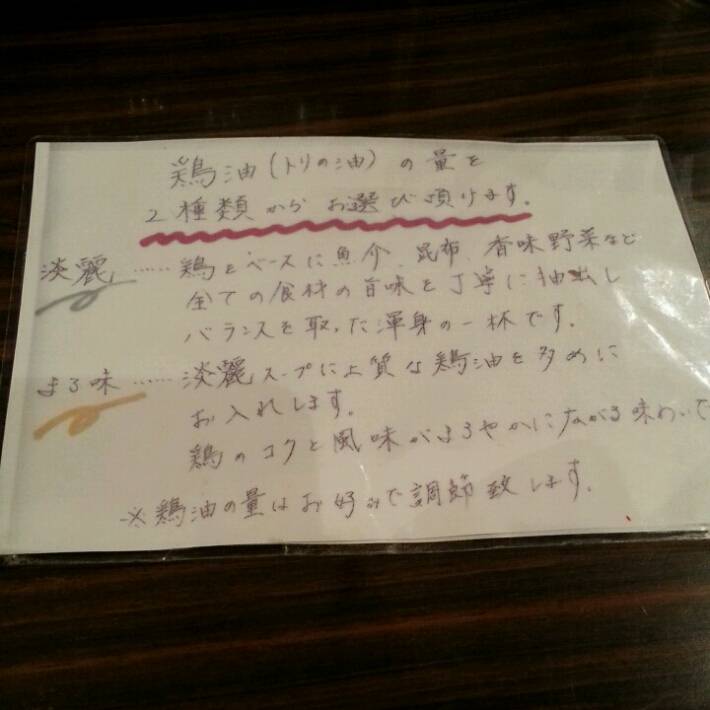 鶏油(トリの油)の量を
2種類からお選び頂けます。
淡麗……鶏をベースに魚介、昆布、香味野菜など
全ての食材の旨味を丁寧に抽出し
バランスを取った渾身の一杯です。
まろ味……淡麗スープに上質な鶏油を多めに
お入れします。
鶏のコクと風味がまろやかに広がる味わいで
※鶏油の量はお好みで調節致します。